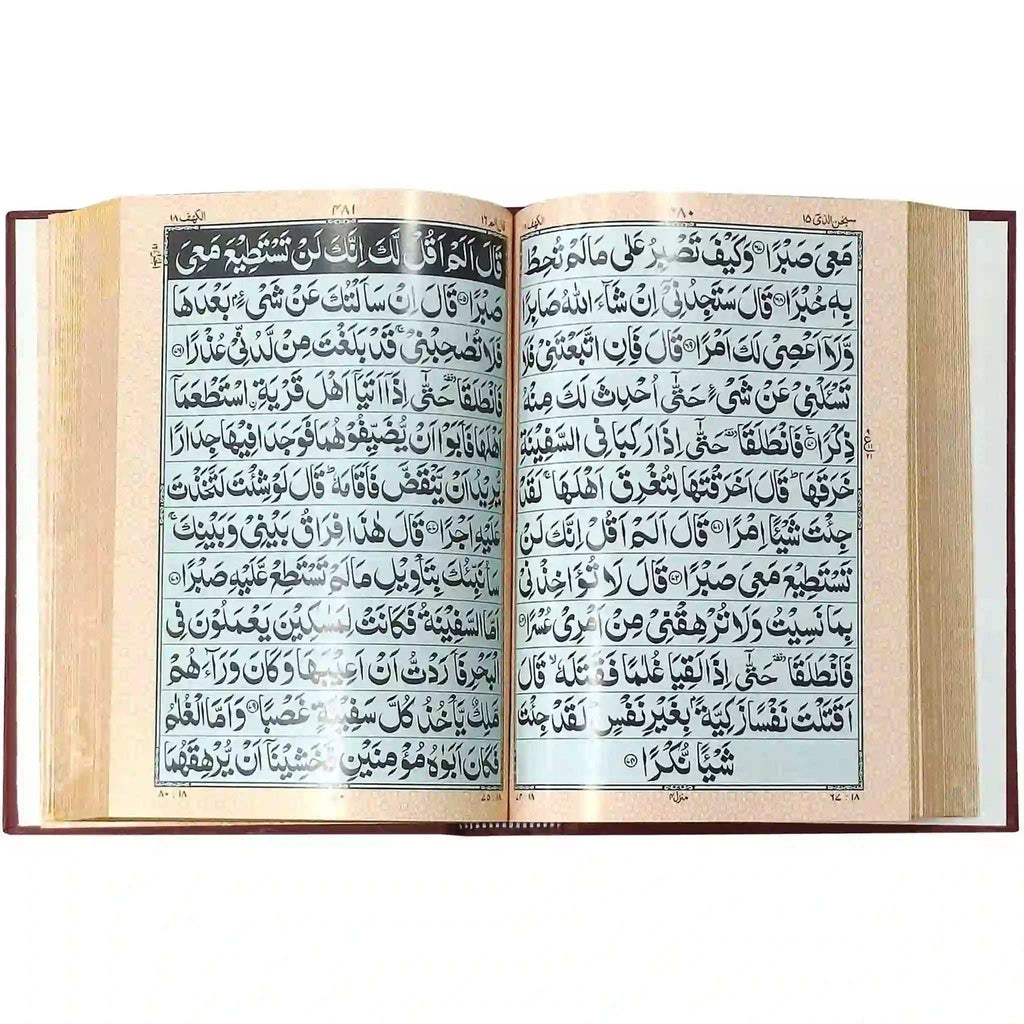 سبحٰن الذی ١٥
٤٨٠
الكهف
مَعِیَ صَبْرًا ﴿٦٧﴾ وَكَیْفَ تَصْبِرُ عَلٰی مَا لَمْ تُحِطْ
بِهٖ خُبْرًا ﴿٦٨﴾ قَالَ سَتَجِدُنِیْۤ اِنْ شَآءَ اللّٰهُ صَابِرًا
وَّلَاۤ اَعْصِیْ لَكَ اَمْرًا ﴿٦٩﴾ قَالَ فَاِنِ اتَّبَعْتَنِیْ فَلَا
تَسْـَٔلْنِیْ عَنْ شَیْءٍ حَتّٰۤی اُحْدِثَ لَكَ مِنْهُ
ذِكْرًا ﴿٧٠﴾ فَانْطَلَقَا ٙ حَتّٰۤی اِذَا رَكِبَا فِی السَّفِیْنَةِ
خَرَقَهَا ؕ قَالَ اَخَرَقْتَهَا لِتُغْرِقَ اَهْلَهَا ۚ لَقَدْ
جِئْتَ شَیْـًٔا اِمْرًا ﴿٧١﴾ قَالَ اَلَمْ اَقُلْ اِنَّكَ لَنْ
تَسْتَطِیْعَ مَعِیَ صَبْرًا ﴿٧٢﴾ قَالَ لَا تُؤَاخِذْنِیْ
بِمَا نَسِیْتُ وَلَا تُرْهِقْنِیْ مِنْ اَمْرِیْ عُسْرًا ﴿٧٣﴾
فَانْطَلَقَا ٙ حَتّٰۤی اِذَا لَقِیَا غُلٰمًا فَقَتَلَهٗ ۙ قَالَ
اَقَتَلْتَ نَفْسًا زَكِیَّةًۢ بِغَیْرِ نَفْسٍ ؕ لَقَدْ جِئْتَ
شَیْـًٔا نُّكْرًا ﴿٧٤﴾
٦٧ : ١٨
منزل ٤
قال الم ١٦
٤٨١
الكهف ١٨
قَالَ اَلَمْ اَقُلْ لَّكَ اِنَّكَ لَنْ تَسْتَطِیْعَ مَعِیَ
صَبْرًا ﴿٧٥﴾ قَالَ اِنْ سَاَلْتُكَ عَنْ شَیْءٍۭ بَعْدَهَا
فَلَا تُصٰحِبْنِیْ ۚ قَدْ بَلَغْتَ مِنْ لَّدُنِّیْ عُذْرًا ﴿٧٦﴾
فَانْطَلَقَا ٙ حَتّٰۤی اِذَاۤ اَتَیَاۤ اَهْلَ قَرْیَةِ ِ۟اسْتَطْعَمَاۤ
اَهْلَهَا فَاَبَوْا اَنْ یُّضَیِّفُوْهُمَا فَوَجَدَا فِیْهَا جِدَارًا
یُّرِیْدُ اَنْ یَّنْقَضَّ فَاَقَامَهٗ ؕ قَالَ لَوْ شِئْتَ لَتَّخَذْتَ
عَلَیْهِ اَجْرًا ﴿٧٧﴾ قَالَ هٰذَا فِرَاقُ بَیْنِیْ وَبَیْنِكَ ۚ
سَاُنَبِّئُكَ بِتَاْوِیْلِ مَا لَمْ تَسْتَطِعْ عَّلَیْهِ صَبْرًا ﴿٧٨﴾
اَمَّا السَّفِیْنَةُ فَكَانَتْ لِمَسٰكِیْنَ یَعْمَلُوْنَ فِی
الْبَحْرِ فَاَرَدْتُّ اَنْ اَعِیْبَهَا وَكَانَ وَرَآءَهُمْ
مَّلِكٌ یَّاْخُذُ كُلَّ سَفِیْنَةٍ غَصْبًا ﴿٧٩﴾ وَاَمَّا الْغُلٰمُ
فَكَانَ اَبَوٰهُ مُؤْمِنَیْنِ فَخَشِیْنَاۤ اَنْ یُّرْهِقَهُمَا
٧٥ : ١٨
٨٠ : ١٨